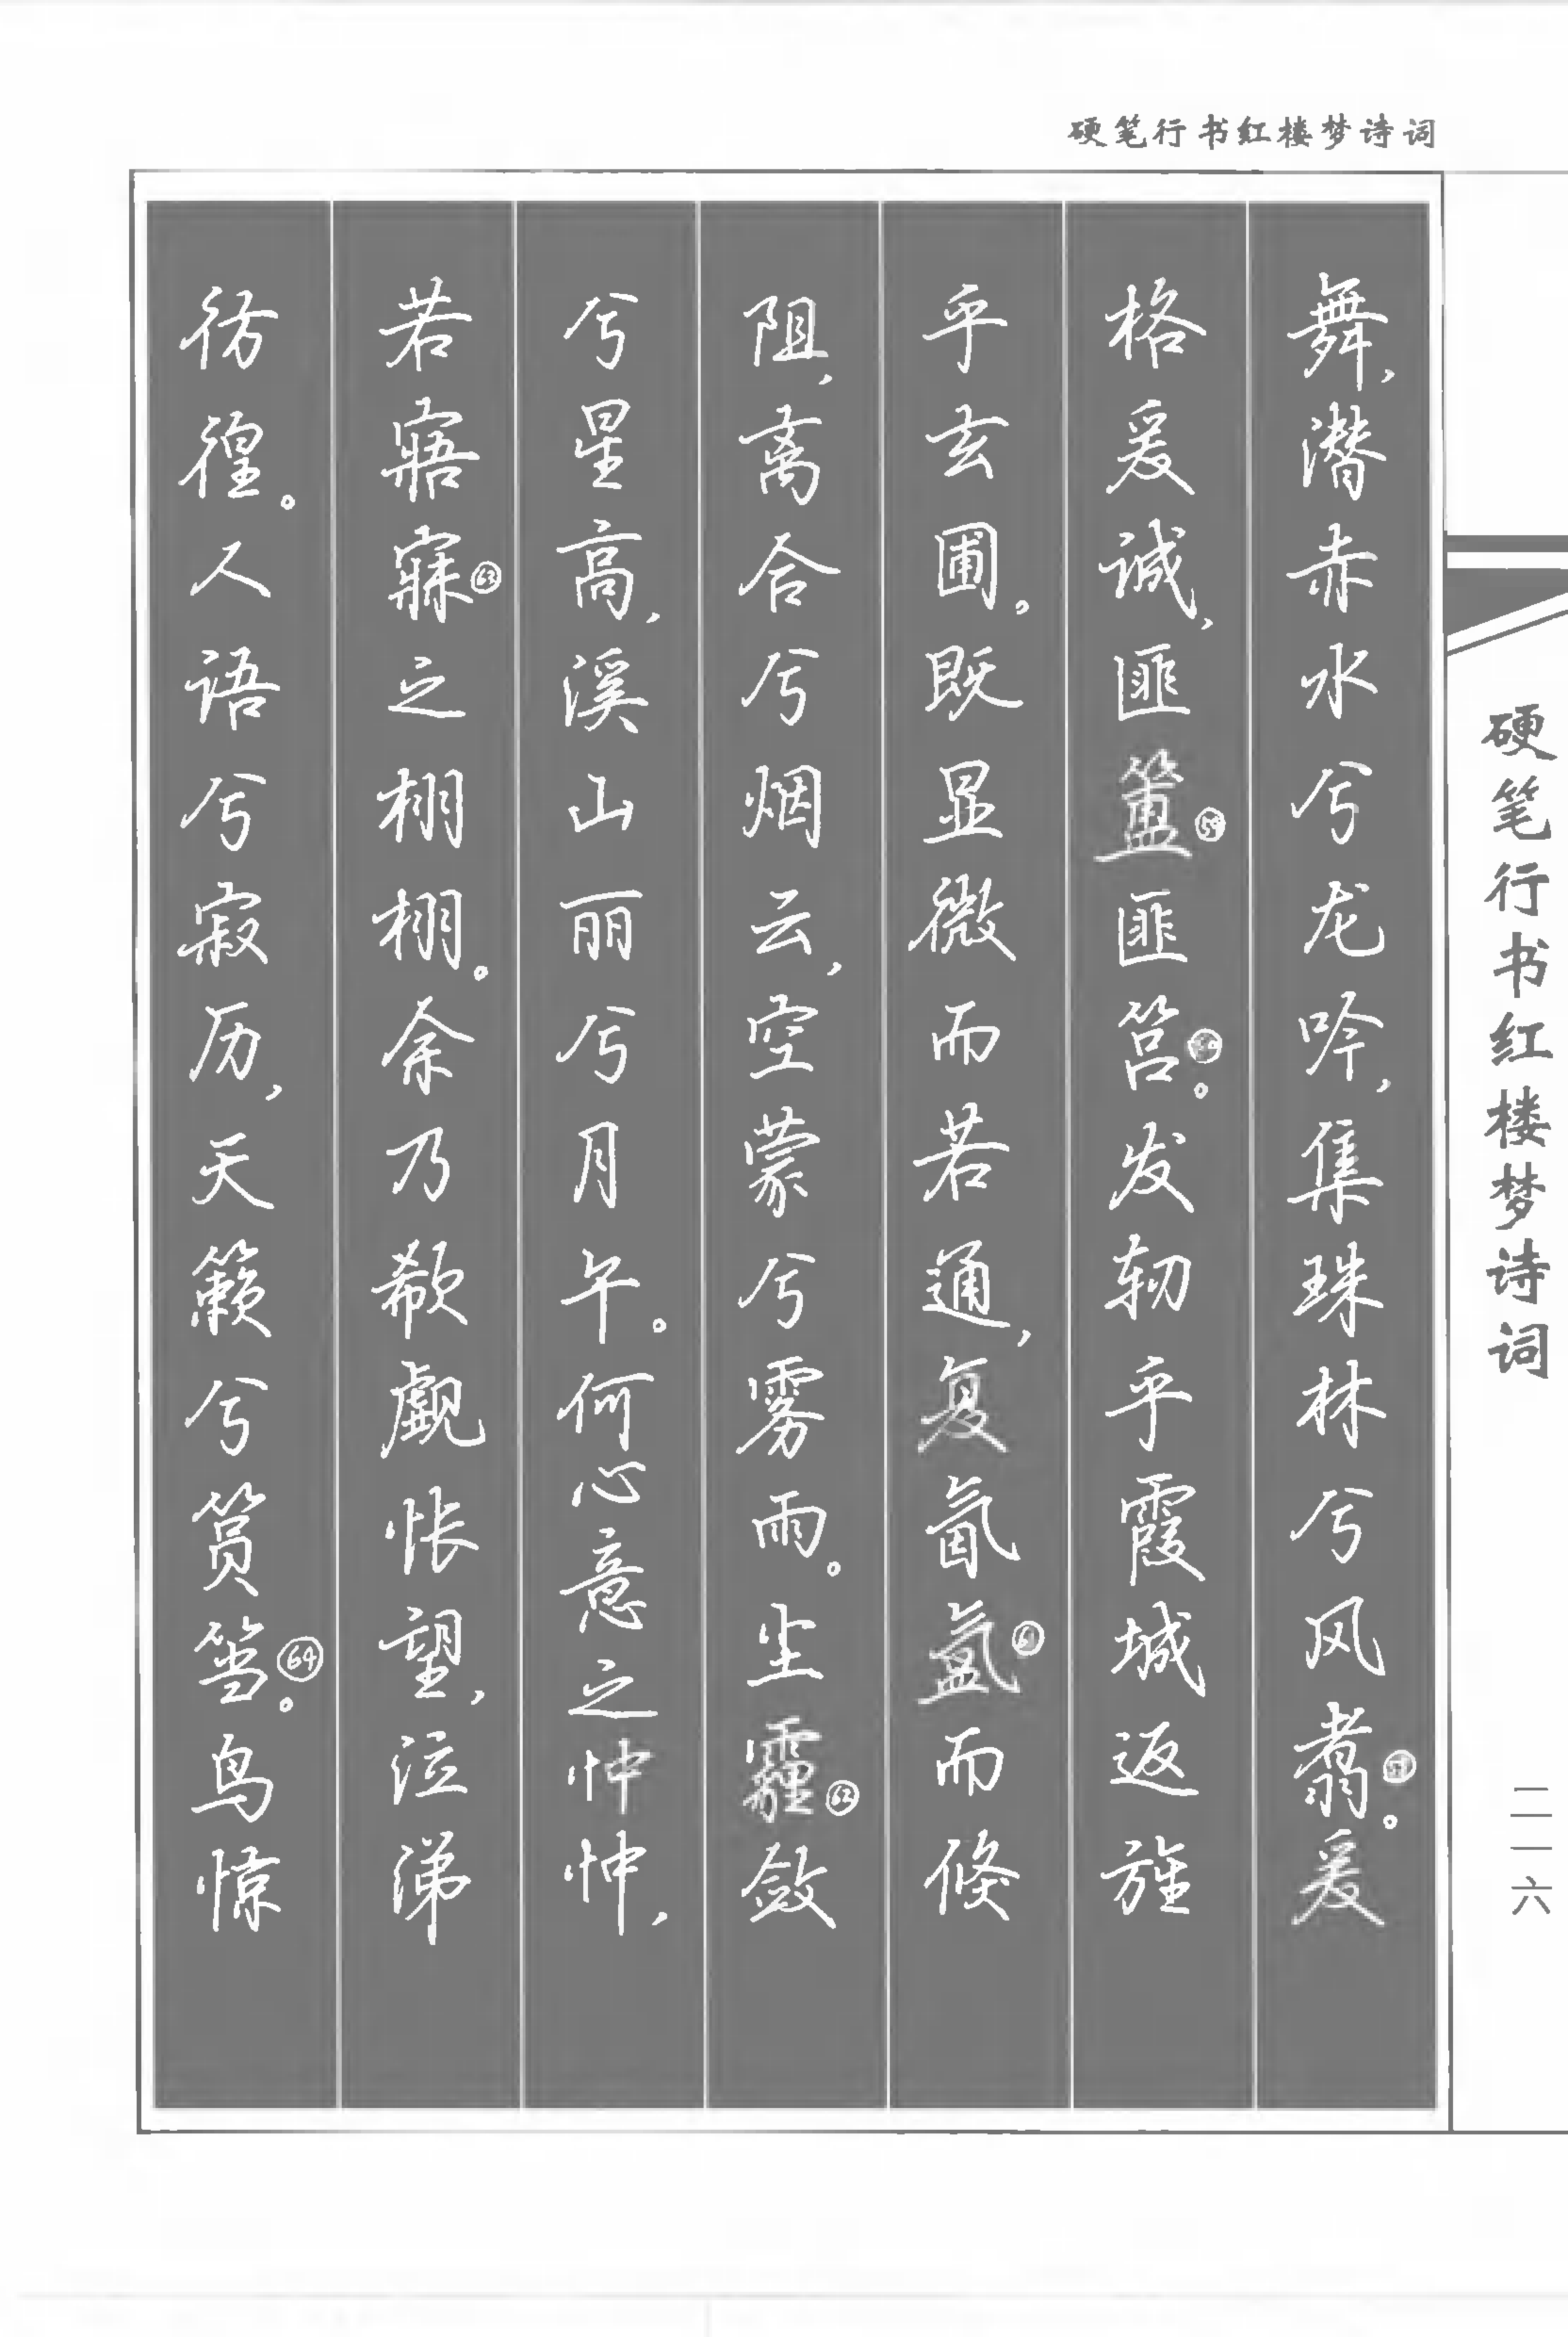 硬笔行书红楼梦诗词
舞，潜赤水兮龙吟，集珠林兮凤翥。爰
格爰诚，匪簠㊾匪筥。发轫乎霞城，返旌
乎玄圃。既显微而若通，复氤氲而倏
阻，离合兮烟云，空蒙兮雾雨。尘霾62敛
兮星高，溪山丽兮月午。何心意之忡忡，
若寤寐63之栩栩。余乃欷歔怅望，泣涕
彷徨。人语兮寂历，天籁兮筼筜64。鸟惊
硬笔行书红楼梦诗词
二一六